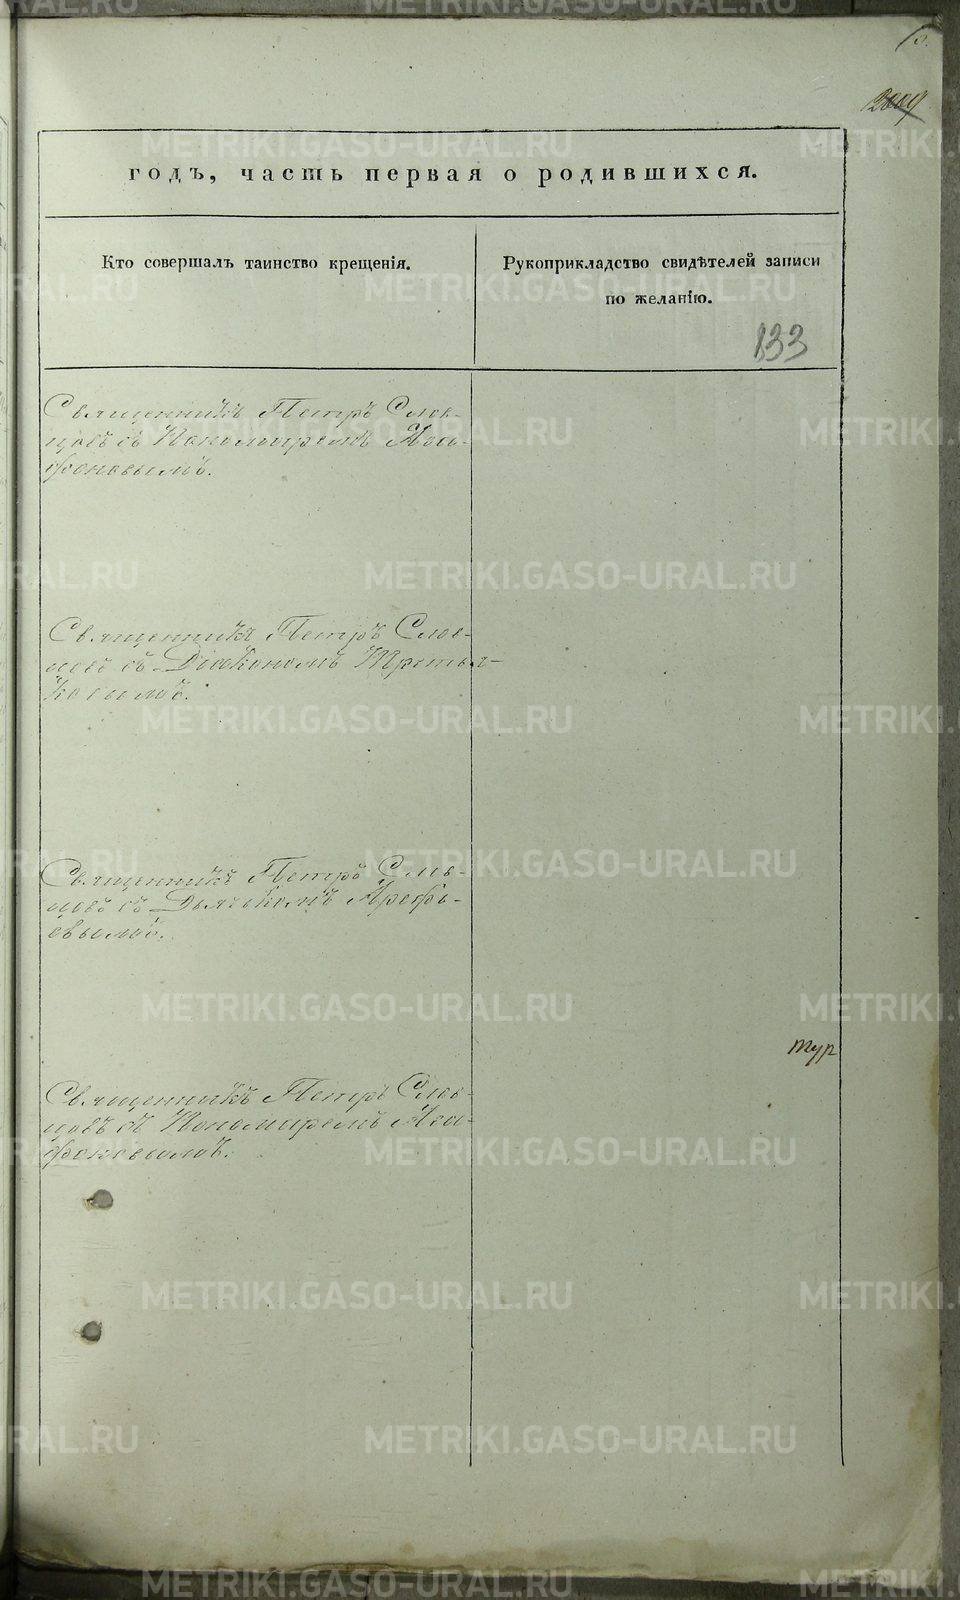 2009
годъ, часть первая о родившихся.
Кто совершалъ таинство крещенія.
Рукоприкладство свидѣтелей записи
по желанію.
133
Священникъ Петръ Слов-
цовъ съ Пономаремъ Ага-
фоновымъ.
Священникъ Петръ Слов-
цовъ съ Діакономъ Третья-
ковымъ.
Священникъ Петръ Слов-
цовъ съ Дьячкомъ Арефь-
евымъ.
тур
Священникъ Петръ Слов-
цовъ съ Пономаремъ Ага-
фоновымъ.
METRIKI.GASO-URAL.RU